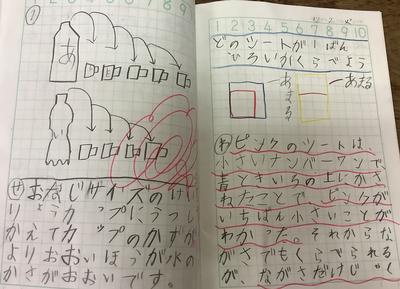 7 8 9
①
あ
せ おなじサイズのけい
りょうカップにうつし
かえてカップのかずが
よりおおいほうが水の
かさがおおいです。
1 2 3 4 5 6 7 8 9 10
どのシートが1ばん
ひろいかくらべよう
あまる
あまる
わ ピンクのシートは、
小さいナンバーワンで
青ときいろの上にかさ
ねたことで ピンクが
いちばん小さいことが
わかった。それからな
がさでもくらべられる
が、ながさだけじゃく